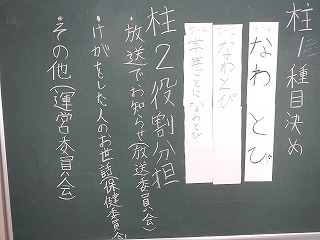 柱1種目決め
5-4
なわとび
5-2
なわとび
学年ごとになわとび
柱2役割分担
・放送でお知らせ(放送委員会)
・けがをした人のお世話(保健委員会)
・その他(運営委員会)